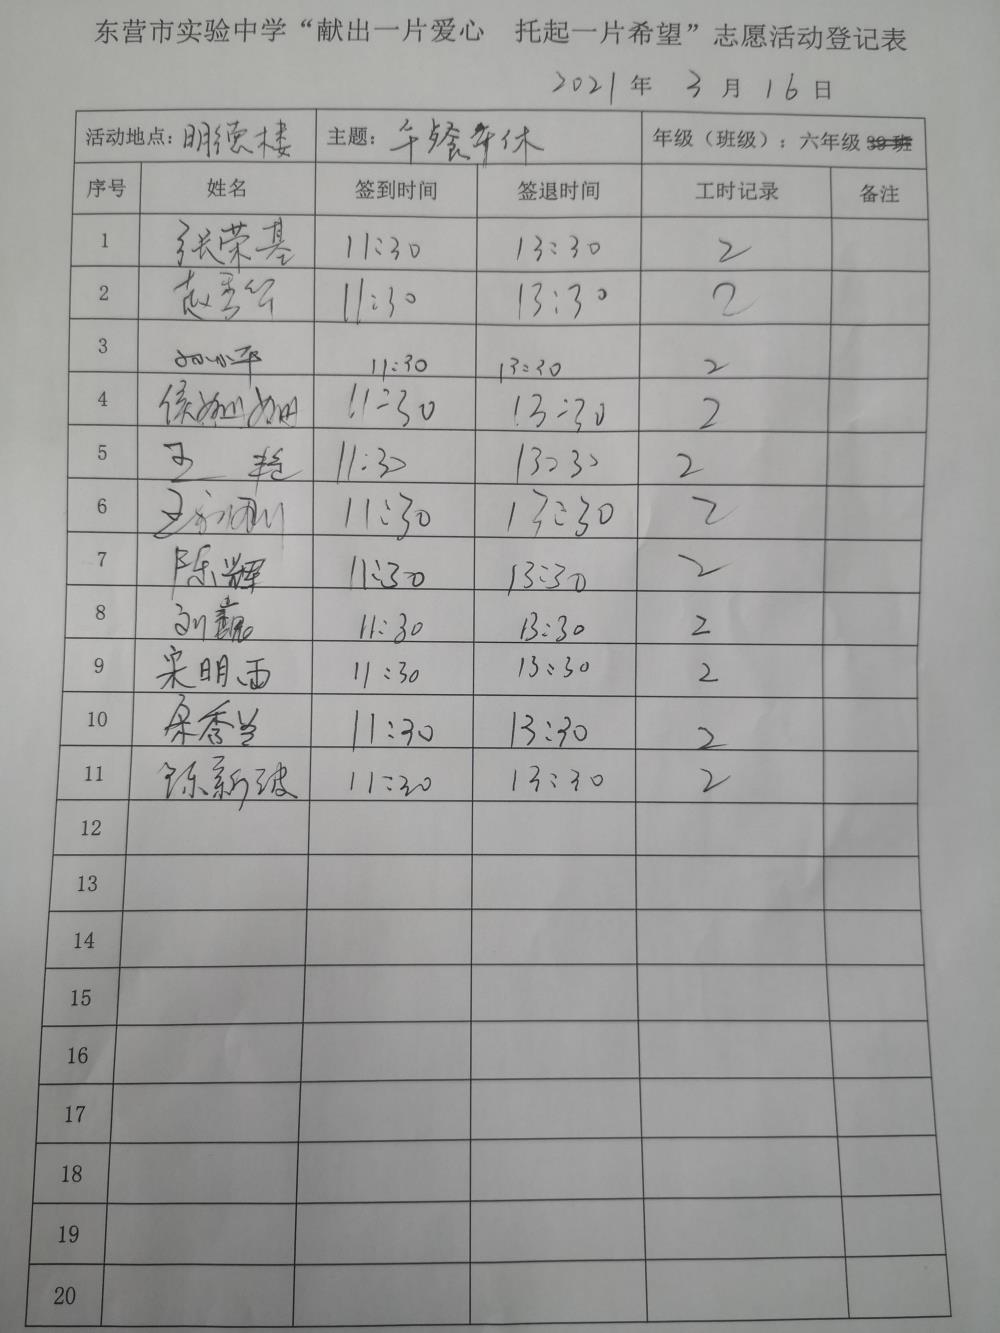 东营市实验中学“献出一片爱心 托起一片希望”志愿活动登记表
2021年 3月 16日
活动地点：明德楼 主题：午餐午休 年级（班级）：六年级
序号 姓名 签到时间 签退时间 工时记录 备注
1 张荣基 11:30 13:30 2
2 11:30 13:30 2
3 孙小平 11:30 13:30 2
4 侯姗姗 11:30 13:30 2
5 王艳 11:30 13:30 2
6 11:30 13:30 2
7 陈辉 11:30 13:30 2
8 刘巍 11:30 13:30 2
9 宋明雨 11:30 13:30 2
10 秀兰 11:30 13:30 2
11 陈新波 11:30 13:30 2
12
13
14
15
16
17
18
19
20